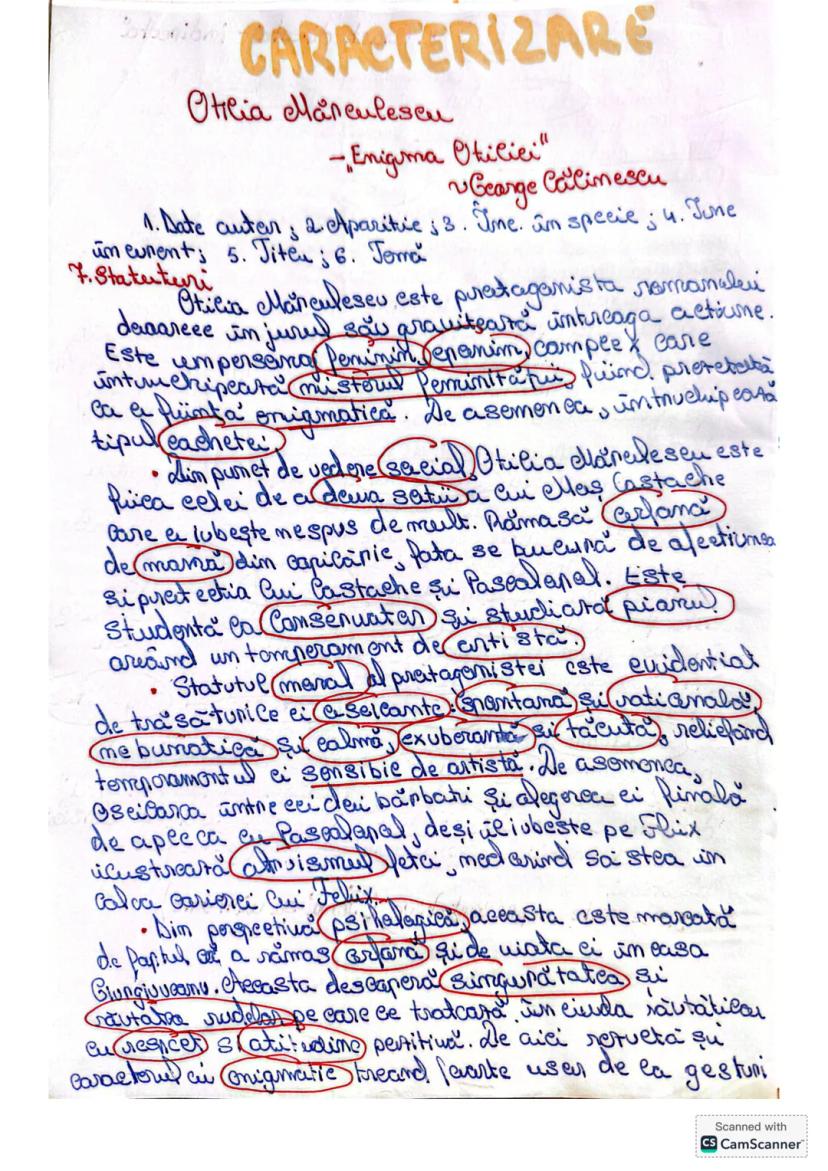 CARACTERIZARE
Otilia Mărculescu
- "Enigma Otiliei"
~ George Călinescu
1. Date autor; 2. Apariție; 3. Înc. în specie; 4. Înc
în curent; 5. Titlu; 6. Temă
7. Statuturi
Otilia Mărculescu este protagonista romanului
deoarece în jurul său gravitează întreaga acțiune.
Este un personaj feminin, eponim, complex care
întruchipează misterul feminității, fiind
ca o ființă enigmatică. De asemenea, întruchipează
tipul cochetei.
• Din punct de vedere social, Otilia Mărculescu este
fiica celei de a doua soții a lui Moș Costache
care o iubește nespus de mult. Rămasă orfană
de mamă din copilărie, fata se bucură de afecțiunea
și protecția lui Costache și Pascalopol. Este
studentă la Conservator și studiază pianul
având un temperament de artistă.
• Statutul moral al protagonistei este evidențiat
de trăsăturile ei oscilante: spontană și rațională,
nebunatică și calmă, exuberantă și tăcută, reliefând
temperamentul ei sensibil de artistă. De asemenea,
oscilarea între cei doi bărbați și alegerea ei finală
de a pleca cu Pascalopol, deși îl iubește pe Felix
ilustrează altruismul fetei, nedorind să stea în
calea carierei lui Felix.
• Din perspectiva psihologică, aceasta este marcată
de faptul că a rămas orfană și de viața ei în casa
Giurgiuveanu. Aceasta descoperă singurătatea și
răutatea rudelor pe care le tratează în ciuda răutăților
cu respect și atitudine pozitivă. De aici rezultă și
caracterul ei enigmatic trecând foarte ușor de la gesturi
Scanned with
CS CamScanner